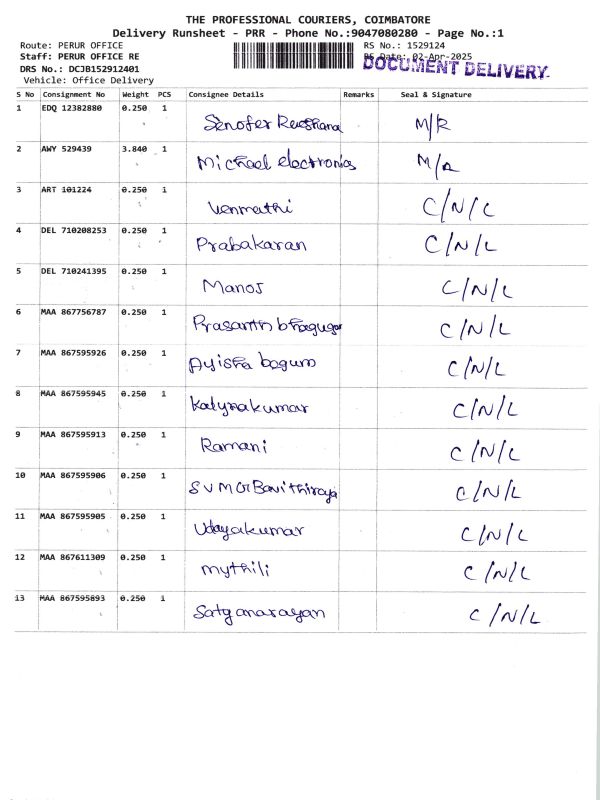 THE PROFESSIONAL COURIERS, COIMBATORE
Delivery Runsheet - PRR - Phone No.:9047080280 - Page No.:1
Route: PERUR OFFICE RS No.: 1529124
Staff: PERUR OFFICE RE RS Date: 02-Apr-2025
DOCUMENT DELIVERY
DRS No.: DCJB152912401
Vehicle: Office Delivery
S No Consignment No Weight PCS Consignee Details Remarks Seal & Signature
1 EDQ 12382880 0.250 1 Senofer M/R
2 AWY 529439 3.840 1 Michael electronics M/R
3 ART 101224 0.250 1 Venmathi C/N/L
4 DEL 710208253 0.250 1 Prabakaran C/N/L
5 DEL 710241395 0.250 1 Manoj C/N/L
6 MAA 867756787 0.250 1 Prasanth C/N/L
7 MAA 867595926 0.250 1 Ayisha begum C/N/L
8 MAA 867595945 0.250 1 C/N/L
9 MAA 867595913 0.250 1 Ramani C/N/L
10 MAA 867595906 0.250 1 S V M C/N/L
11 MAA 867595905 0.250 1 Udayakumar C/N/L
12 MAA 867611309 0.250 1 mythili C/N/L
13 MAA 867595893 0.250 1 Satyanarayan C/N/L